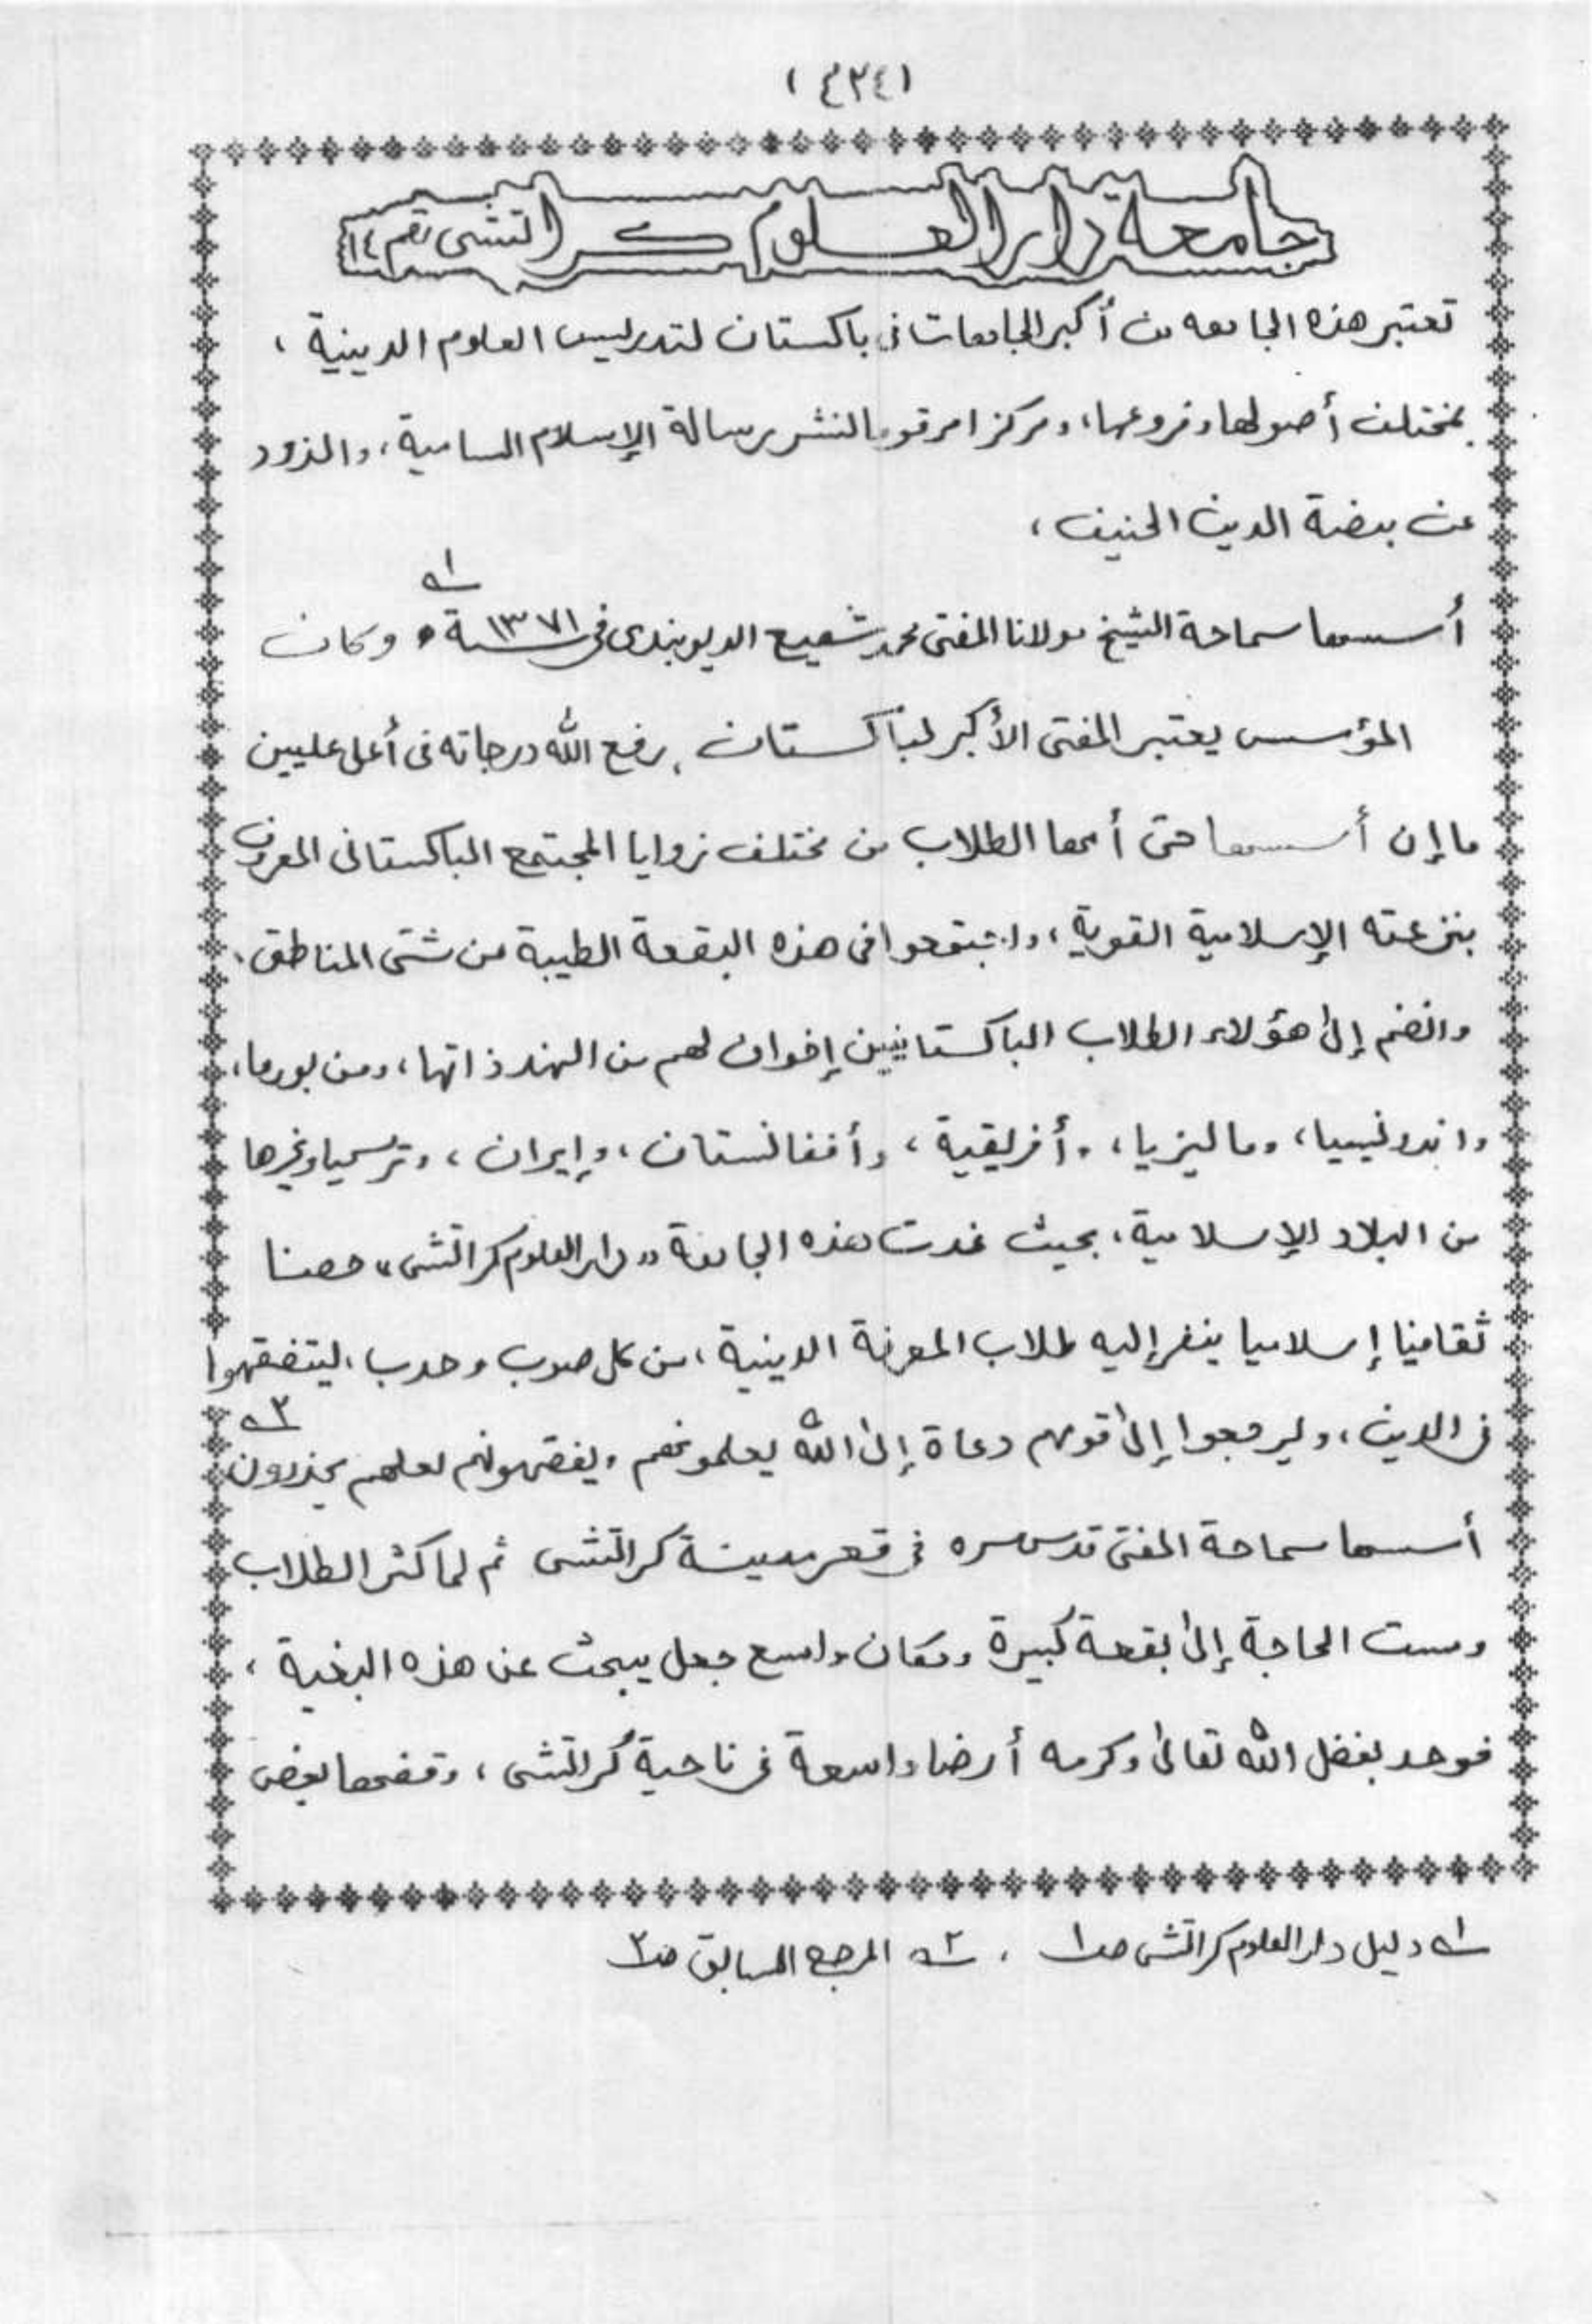 (٤٢٤)
جامعة دار العلوم كراتشى رقم ١٤
تعتبر هذه الجامعه من أكبر الجامعات فى باكستان لتدريس العلوم الدينية ،
بمختلف أصولها وفروعها، ومركزا مرقوما لنشر رسالة الإسلام السامية، والذود
عن بيضة الدين الحنيف ،
أسسها سماحة الشيخ مولانا المفتى محمد شفيع الديوبندى فى سنة ١٣٧١ه ١ه وكان
المؤسس يعتبر المفتى الأكبر لباكستان ، رفع الله درجاته فى أعلى عليين
ما إن أسسها حتى أمها الطلاب من مختلف زوايا المجتمع الباكستانى المعروف
بنزعته الإسلامية القوية ، واجتمعوا فى هذه البقعة الطيبة من شتى المناطق .
وانضم إلى هؤلاء الطلاب الباكستانيين إخوان لهم من الهند ذاتها ، ومن بورما ،
واندونيسيا ، وماليزيا ، وأفريقية ، وأفغانستان ، وإيران ، وتركيا وغيرها
من البلاد الإسلامية ، بحيث غدت هذه الجامعة "دار العلوم كراتشى" حصنا
ثقافيا إسلاميا ينفر إليه طلاب المعرفة الدينية ، من كل صوب وحدب ، ليتفقهوا
فى الدين ، وليرجعوا إلى قومهم دعاة إلى الله يعلمونهم ويفقهونهم لعلهم يحذرون ٢ه
أسسها سماحة المفتى قدس سره فى قعر مدينة كراتشى ثم لما كثر الطلاب
ومست الحاجة إلى بقعة كبيرة ومكان واسع جعل يبحث عن هذه البغية ،
فوجد بفضل الله تعالى وكرمه أرضا واسعة فى ناحية كراتشى ، وقفها بعض
١ه دليل دار العلوم كراتشى صـ١ ، ٢ه المرجع السابق صـ٢